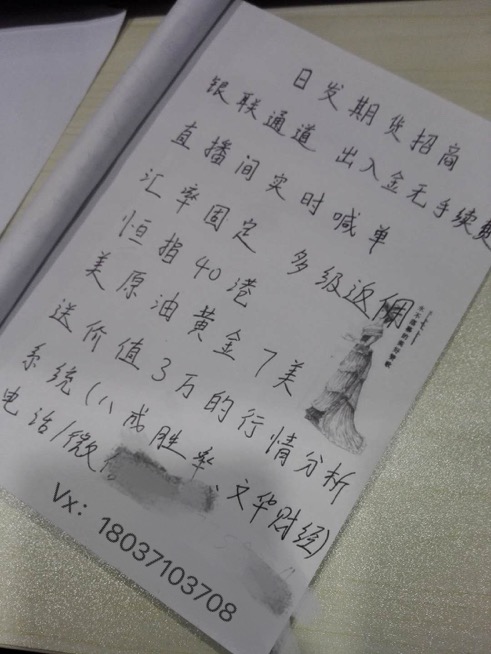 日发期货招商
银联通道 出入金无手续费
直播间实时喊单
汇率固定 多级返佣
恒指40港
美原油黄金7美
送价值3万的行情分析
系统(八成胜率、文华财经)
电话/微
Vx：18037103708